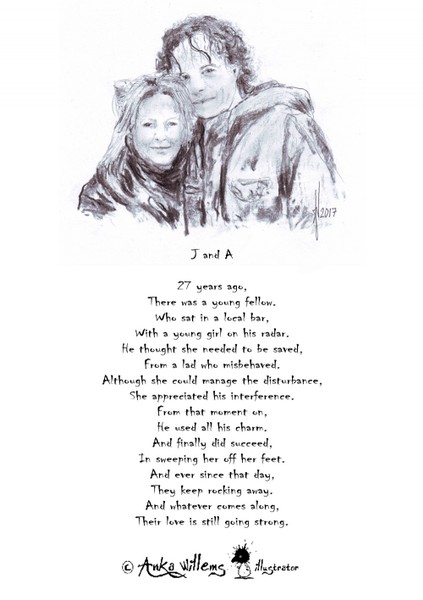 2017
J and A
27 years ago,
There was a young fellow.
Who sat in a local bar,
With a young girl on his radar.
He thought she needed to be saved,
From a lad who misbehaved.
Although she could manage the disturbance,
She appreciated his interference.
From that moment on,
He used all his charm.
And finally did succeed,
In sweeping her off her feet.
And ever since that day,
They keep rocking away.
And whatever comes along,
Their love is still going strong.
© Anka Willems illustrator